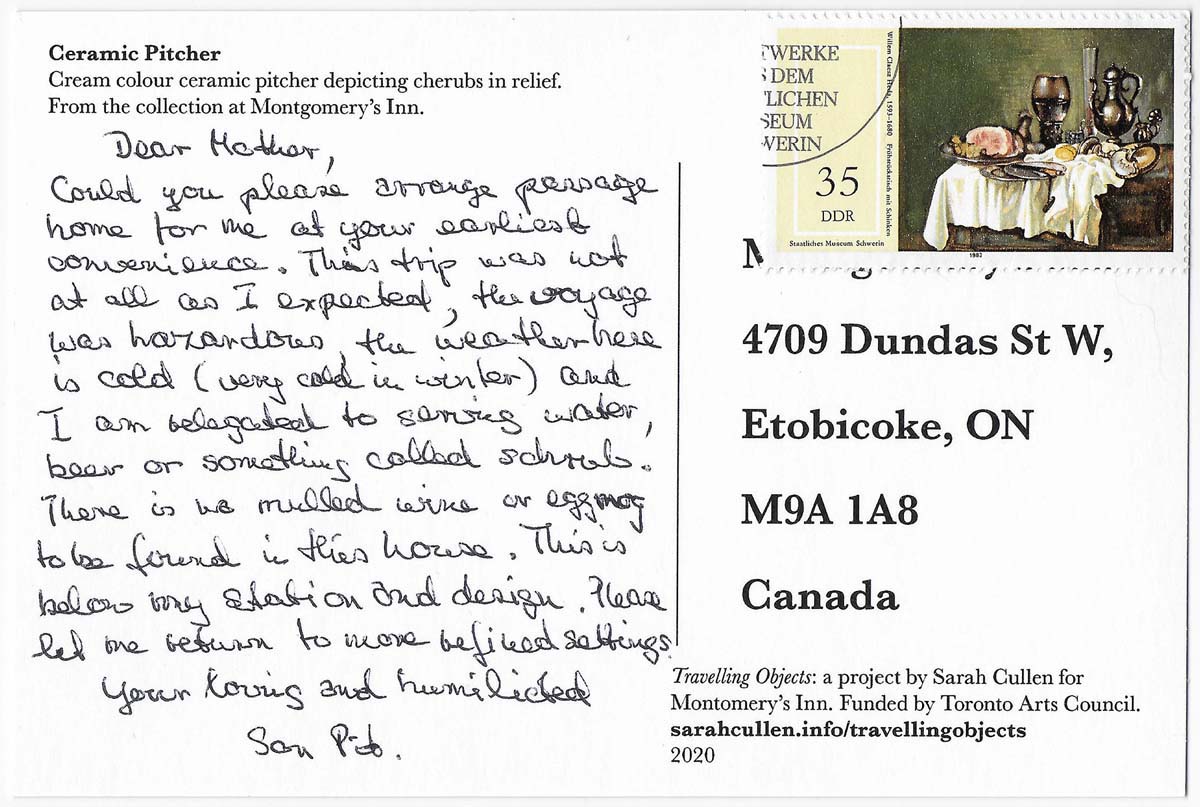 Ceramic Pitcher
Cream colour ceramic pitcher depicting cherubs in relief.
From the collection at Montgomery's Inn.
Dear Mother,
Could you please arrange passage
home for me at your earliest
convenience. This trip was not
at all as I expected, the voyage
was hazardous, the weather here
is cold (very cold in winter) and
I am relegated to serving water,
beer or something called schrub.
There is no mulled wine or eggnog
to be found in this house. This is
below my station and design. Please
let me return to more refined settings.
Your loving and humiliated
Son
TWERKE
S DEM
TLICHEN
SEUM
WERIN
35
DDR
Staatliches Museum Schwerin
Willem Claesz Heda, 1593–1680 Frühstückstisch mit Schinken
1982
4709 Dundas St W,
Etobicoke, ON
M9A 1A8
Canada
Travelling Objects: a project by Sarah Cullen for
Montomery's Inn. Funded by Toronto Arts Council.
sarahcullen.info/travellingobjects
2020